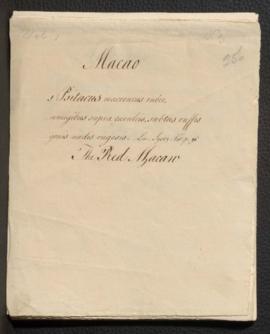 Macao
Psitacus macrourus ruber
remigibus supra cæruleis, subtus ruffis
genis nudis rugosis. Lin. Syst. Nat. p. 96
The Red Macaw